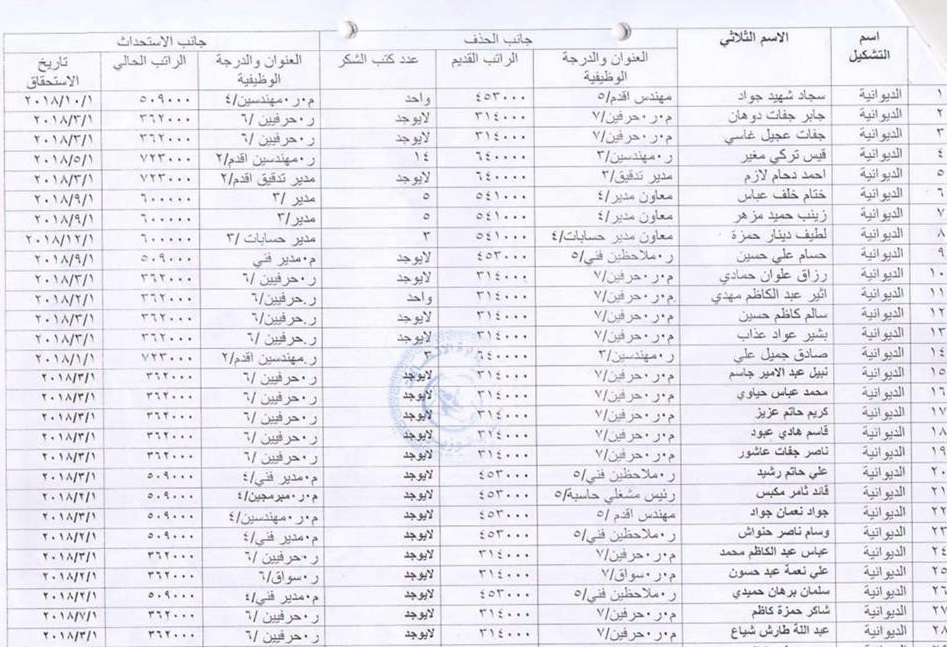 اسم التشكيل | الاسم الثلاثي | جانب الحذف | جانب الاستحداث
العنوان والدرجة الوظيفية | الراتب القديم | عدد كتب الشكر | العنوان والدرجة الوظيفية | الراتب الحالي | تاريخ الاستحقاق
١ الديوانية سجاد شهيد جواد مهندس اقدم/٥ ٤٥٣٠٠٠ واحد م٠ر٠مهندسين/٤ ٥٠٩٠٠٠ ٢٠١٨/١٠/١
٢ الديوانية جابر جفات دوهان م٠ر٠حرفين/٧ ٣١٤٠٠٠ لايوجد ر٠حرفيين /٦ ٣٦٢٠٠٠ ٢٠١٨/٣/١
٣ الديوانية جفات عجيل غاسي م٠ر٠حرفين/٧ ٣١٤٠٠٠ لايوجد ر٠حرفيين /٦ ٣٦٢٠٠٠ ٢٠١٨/٣/١
٤ الديوانية قيس تركي مغير ر٠مهندسين/٣ ٦٤٠٠٠٠ ١٤ ر٠مهندسين اقدم/٢ ٧٢٣٠٠٠ ٢٠١٨/٥/١
٥ الديوانية احمد دحام لازم مدير تدقيق/٣ ٦٤٠٠٠٠ لايوجد مدير تدقيق اقدم/٢ ٧٢٣٠٠٠ ٢٠١٨/٣/١
٦ الديوانية ختام خلف عباس معاون مدير/٤ ٥٤١٠٠٠ ٥ مدير /٣ ٦٠٠٠٠٠ ٢٠١٨/٩/١
٧ الديوانية زينب حميد مزهر معاون مدير/٤ ٥٤١٠٠٠ ٥ مدير/٣ ٦٠٠٠٠٠ ٢٠١٨/٩/١
٨ الديوانية لطيف دينار حمزة معاون مدير حسابات/٤ ٥٤١٠٠٠ ٣ مدير حسابات /٣ ٦٠٠٠٠٠ ٢٠١٨/١٢/١
٩ الديوانية حسام علي حسين ر٠ملاحظين فني/٥ ٤٥٣٠٠٠ لايوجد م٠مدير فني ٥٠٩٠٠٠ ٢٠١٨/٩/١
١٠ الديوانية رزاق علوان حمادي م٠ر٠حرفين/٧ ٣١٤٠٠٠ لايوجد ر٠حرفيين /٦ ٣٦٢٠٠٠ ٢٠١٨/٣/١
١١ الديوانية اثير عبد الكاظم مهدي م.ر٠حرفين/٧ ٣١٤٠٠٠ واحد ر.حرفيين/٦ ٣٦٢٠٠٠ ٢٠١٨/٢/١
١٢ الديوانية سالم كاظم حسين م٠ر٠حرفين/٧ ٣١٤٠٠٠ لايوجد ر.حرفيين/٦ ٣٦٢٠٠٠ ٢٠١٨/٣/١
١٣ الديوانية بشير عواد عذاب م٠ر٠حرفين/٧ ٣١٤٠٠٠ لايوجد ر.حرفيين /٦ ٣٦٢٠٠٠ ٢٠١٨/٣/١
١٤ الديوانية صادق جميل علي ر٠مهندسين/٣ ٦٤٠٠٠٠ ٣ ر.مهندسين اقدم/٢ ٧٢٣٠٠٠ ٢٠١٨/١/١
١٥ الديوانية نبيل عبد الامير جاسم م٠ر٠حرفين/٧ ٣١٤٠٠٠ لايوجد ر٠حرفيين /٦ ٣٦٢٠٠٠ ٢٠١٨/٣/١
١٦ الديوانية محمد عباس حياوي م٠ر٠حرفين/٧ ٣١٤٠٠٠ لايوجد ر٠حرفيين /٦ ٣٦٢٠٠٠ ٢٠١٨/٣/١
١٧ الديوانية كريم حاتم عزيز م٠ر٠حرفين/٧ ٣١٤٠٠٠ لايوجد ر٠حرفيين /٦ ٣٦٢٠٠٠ ٢٠١٨/٣/١
١٨ الديوانية قاسم هادي عبود م٠ر٠حرفين/٧ ٣١٤٠٠٠ لايوجد ر٠حرفيين /٦ ٣٦٢٠٠٠ ٢٠١٨/٣/١
١٩ الديوانية ناصر جفات عاشور م٠ر٠حرفين/٧ ٣١٤٠٠٠ لايوجد ر٠حرفيين /٦ ٣٦٢٠٠٠ ٢٠١٨/٣/١
٢٠ الديوانية علي حاتم رشيد ر٠ملاحظين فني/٥ ٤٥٣٠٠٠ لايوجد م٠مدير فني/٤ ٥٠٩٠٠٠ ٢٠١٨/٣/١
٢١ الديوانية قائد ثامر مكبس رئيس مشغلي حاسبة/٥ ٤٥٣٠٠٠ لايوجد م٠ر٠مبرمجين/٤ ٥٠٩٠٠٠ ٢٠١٨/٢/١
٢٢ الديوانية جواد نعمان جواد مهندس اقدم /٥ ٤٥٣٠٠٠ لايوجد م٠ر٠مهندسين/٤ ٥٠٩٠٠٠ ٢٠١٨/٣/١
٢٣ الديوانية وسام ناصر حنواش ر٠ملاحظين فني/٥ ٤٥٣٠٠٠ لايوجد م٠مدير فني/٤ ٥٠٩٠٠٠ ٢٠١٨/٢/١
٢٤ الديوانية عباس عبد الكاظم محمد م٠ر٠حرفين/٧ ٣١٤٠٠٠ لايوجد ر٠حرفيين /٦ ٣٦٢٠٠٠ ٢٠١٨/٣/١
٢٥ الديوانية علي نعمة عبد حسون م٠ر٠سواق/٧ ٣١٤٠٠٠ لايوجد ر٠سواق/٦ ٣٦٢٠٠٠ ٢٠١٨/٢/١
٢٦ الديوانية سلمان برهان حميدي ر٠ملاحظين فني/٥ ٤٥٣٠٠٠ لايوجد م٠مدير فني/٤ ٥٠٩٠٠٠ ٢٠١٨/٢/١
٢٧ الديوانية شاكر حمزة كاظم م٠ر٠حرفين/٧ ٣١٤٠٠٠ لايوجد ر٠حرفيين /٦ ٣٦٢٠٠٠ ٢٠١٨/٧/١
٢٨ الديوانية عبد اللة طارش شياع م٠ر٠حرفين/٧ ٣١٤٠٠٠ لايوجد ر٠حرفيين /٦ ٣٦٢٠٠٠ ٢٠١٨/٣/١